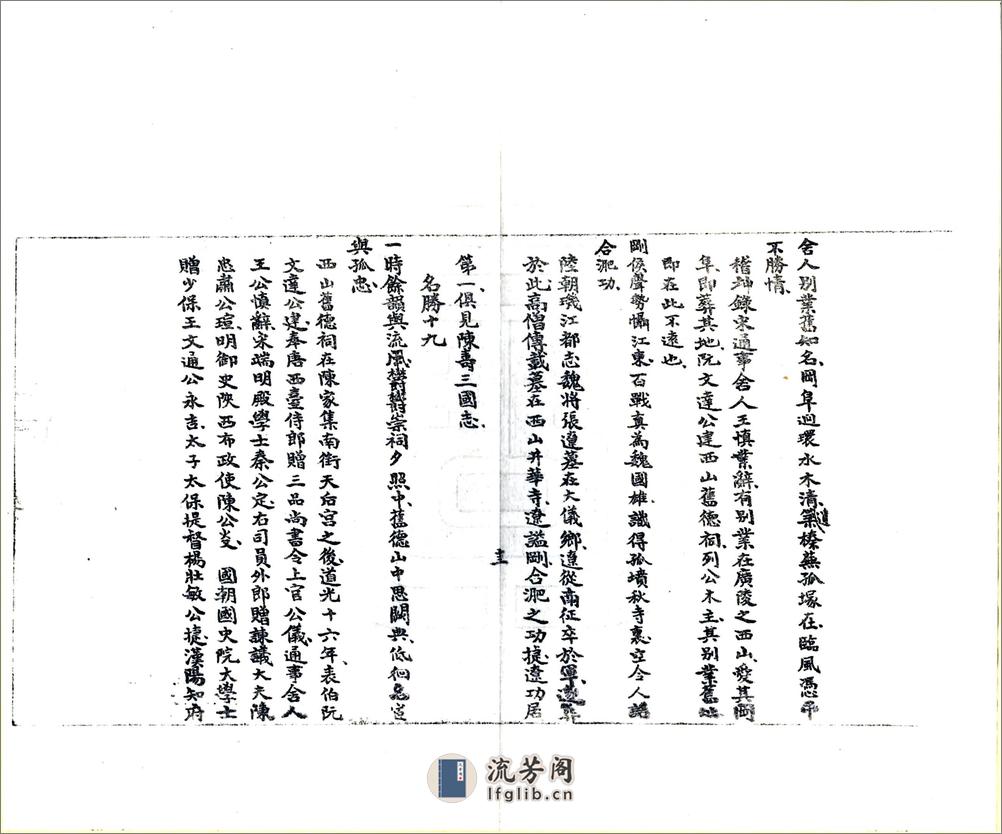 舍人別業舊知名岡阜迴環水木清榛蕪孤塚在臨風憑弔
不勝情
稽神錄宋通事舍人王慎辭有別業在廣陵之西山愛其岡
阜即葬其地阮文達公建西山舊德祠列公木主其別業舊址
即在此不遠也
剛侯聲勢懾江東百戰真為魏國雄識得孤墳秋寺裏空令人話
合淝功
陸朝璣江都志魏將張遼墓在大儀鄉遼從南征卒於軍遂葬
於此高僧傳載墓在西山井華寺遼謚剛合淝之功捷遼功居
圭
第一俱見陳壽三國志
名勝十九
一時餘韻與流風鬱鬱崇祠夕照中舊德山中思闕典低徊名宦
與孤忠
西山舊德祠在陳家集南街天后宮之後道光十六年表伯阮
文達公建奉唐西臺侍郎贈三品尚書令上官公儀通事舍人
王公慎辭宋端明殿學士秦公定右司員外郎贈諫議大夫陳
忠肅公瓘明御史陝西布政使陳公炎 國朝國史院大學士
贈少保王文通公永吉太子太保提督楊壯敏公捷漢陽知府
流芳阁
lfglib.cn